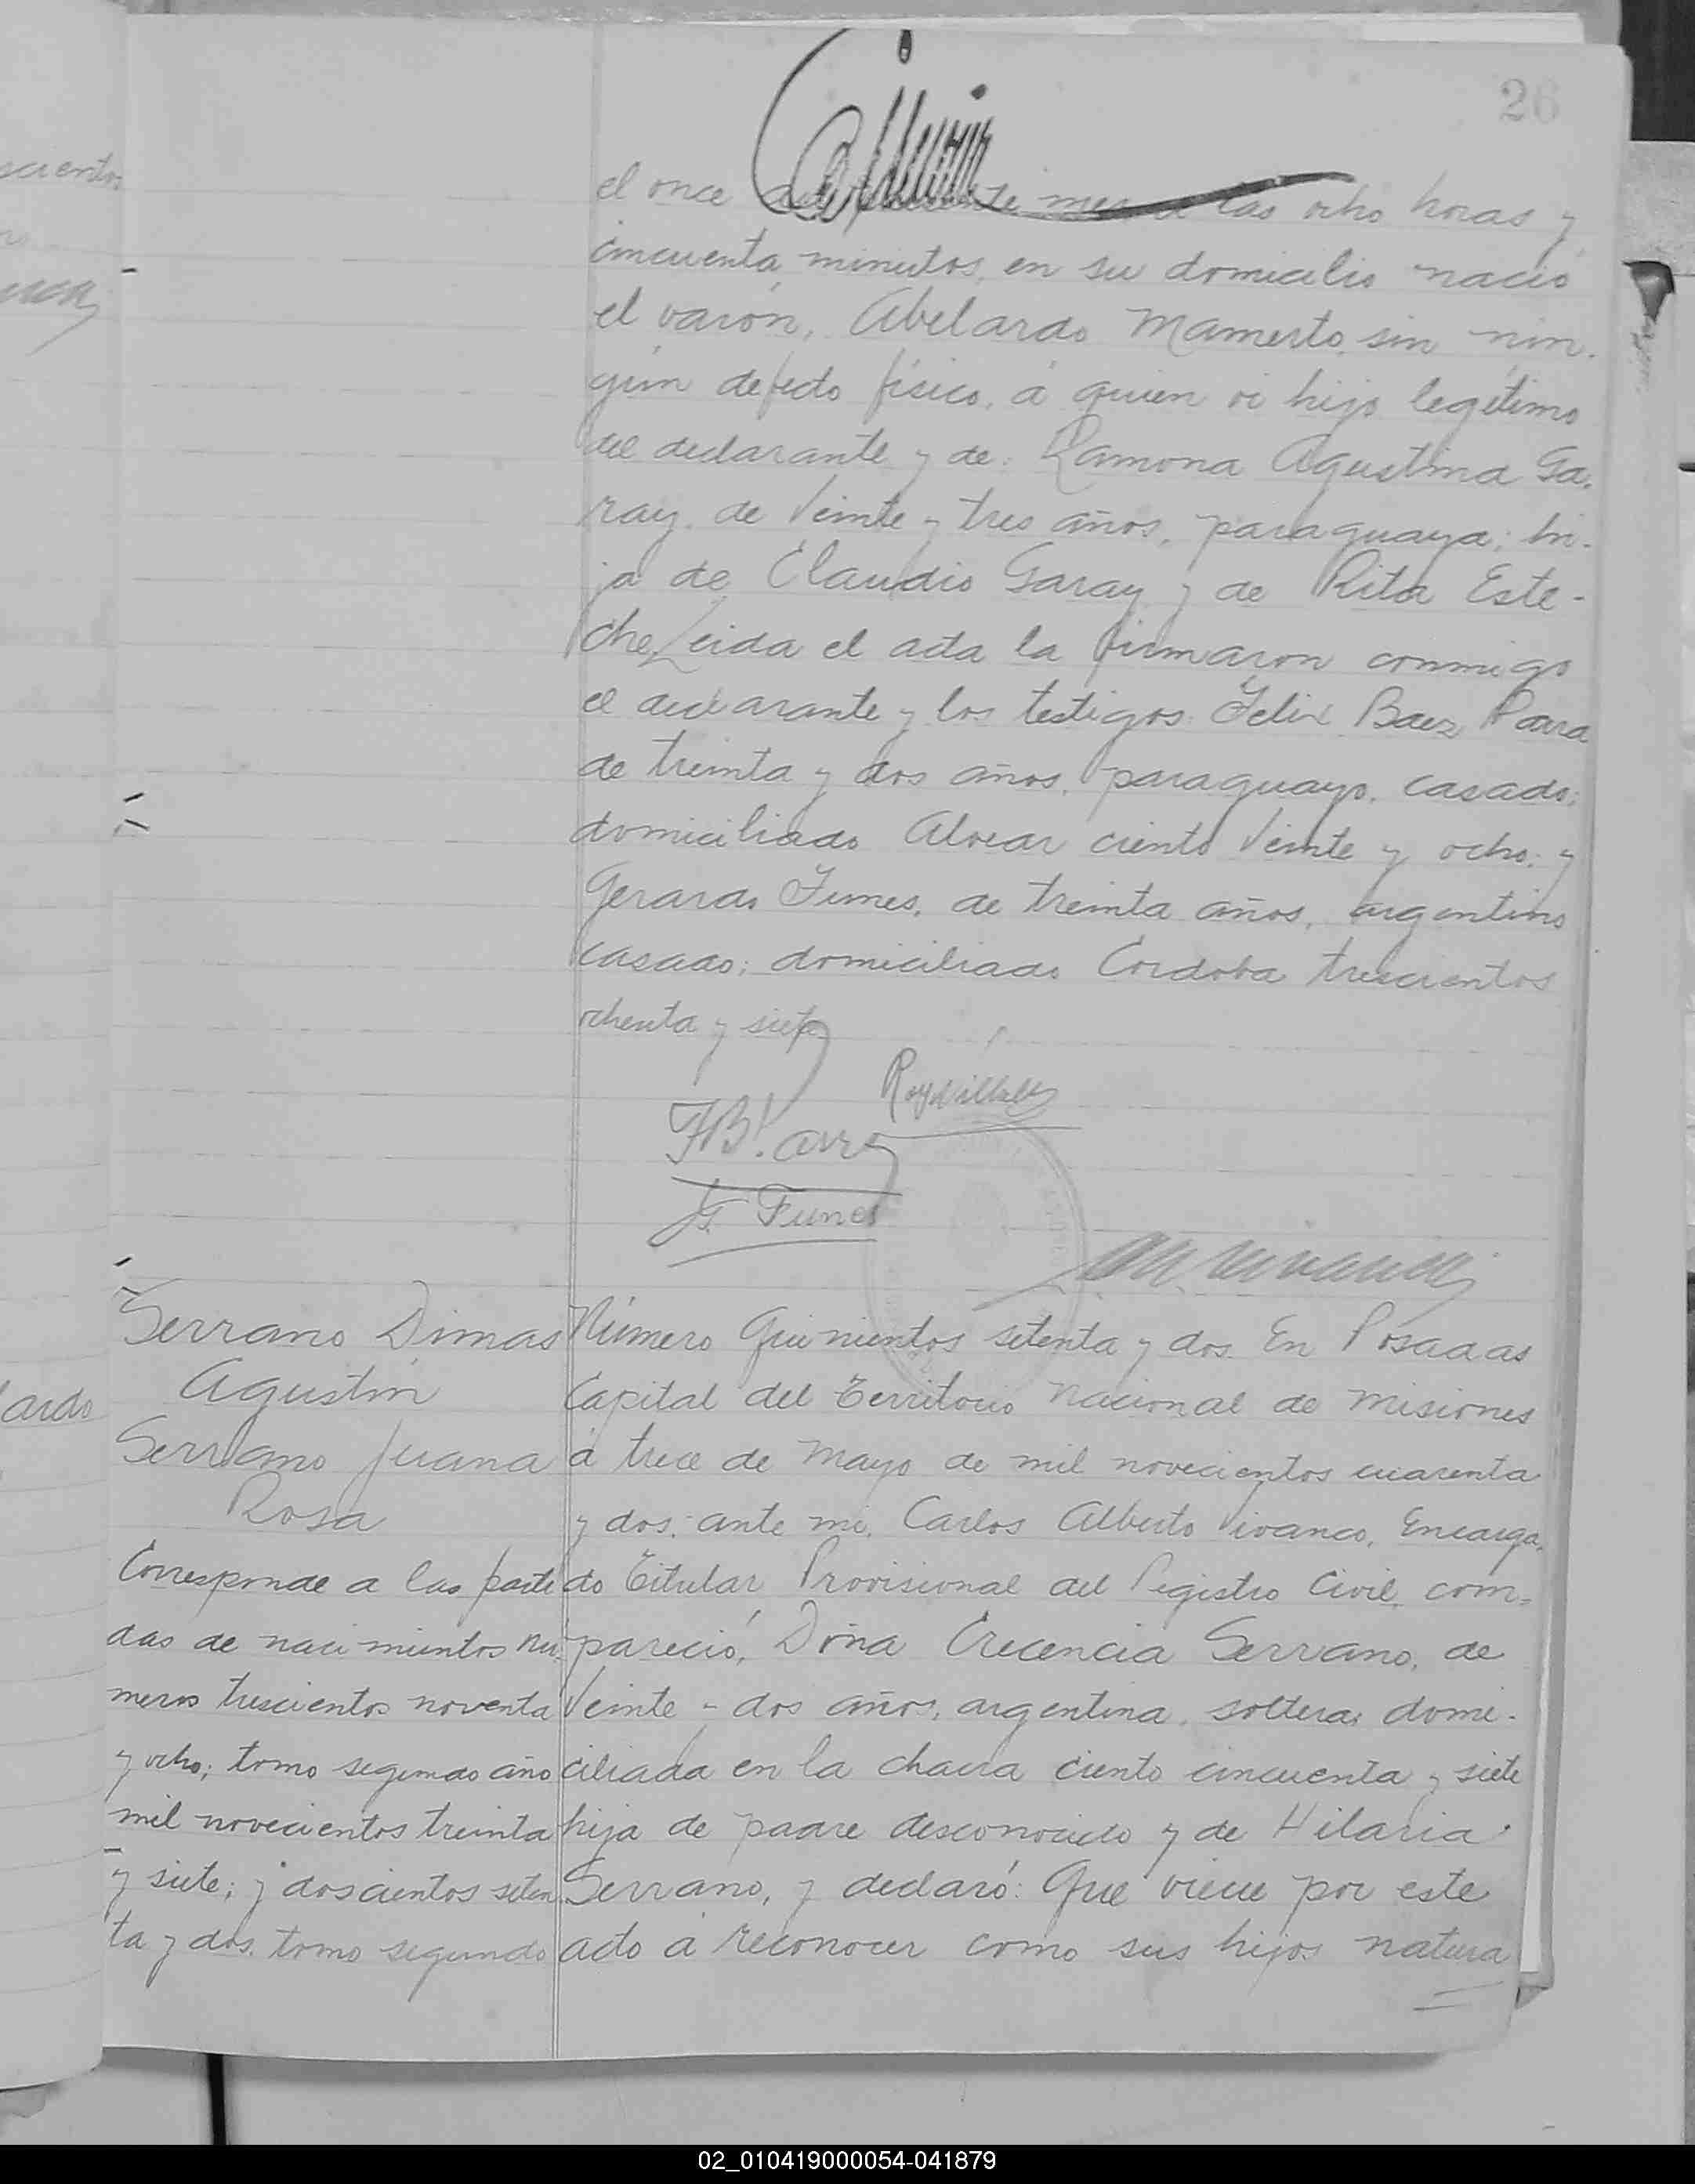 26
el once del presente mes a las ocho horas y
cincuenta minutos, en su domicilio nació
el varón, Abelardo Mamerto, sin nin-
gún defecto físico, á quien vi hijo legítimo
del declarante y de: Ramona Agustina Ga-
ray, de veinte y tres años, paraguaya; hi-
ja de Claudio Garay y de Rita Este-
che Leida el acta la firmaron conmigo
el declarante y los testigos: Felix Baez Parra
de treinta y dos años, paraguayo, casado;
domiciliado Alvear ciento veinte y ocho; y
Gerardo Funes, de treinta años, argentino
casado; domiciliado Cordoba trescientos
ochenta y siete
G. Funes
Serrano Dimas
Agustín
Serrano Juana
Rosa
Corresponde a las parti
das de nacimientos nú-
meros trescientos noventa
y ocho; tomo segundo año
mil novecientos treinta
y siete; y doscientos seten
ta y dos. tomo segundo
Número Quinientos setenta y dos. En Posadas
Capital del Territorio Nacional de Misiones
á trece de Mayo de mil novecientos cuarenta
y dos: ante mi, Carlos Alberto Vivanco, Encarga-
do Titular Provisional del Registro Civil, com-
pareció, Doña Crecencia Serrano, de
veinte y dos años, argentina, soltera; domi-
ciliada en la chacra ciento cincuenta y siete
hija de padre desconocido y de Hilaria
Serrano, y declaró: Que viene por este
acto á reconocer como sus hijos natura
ardo
02_010419000054-041879